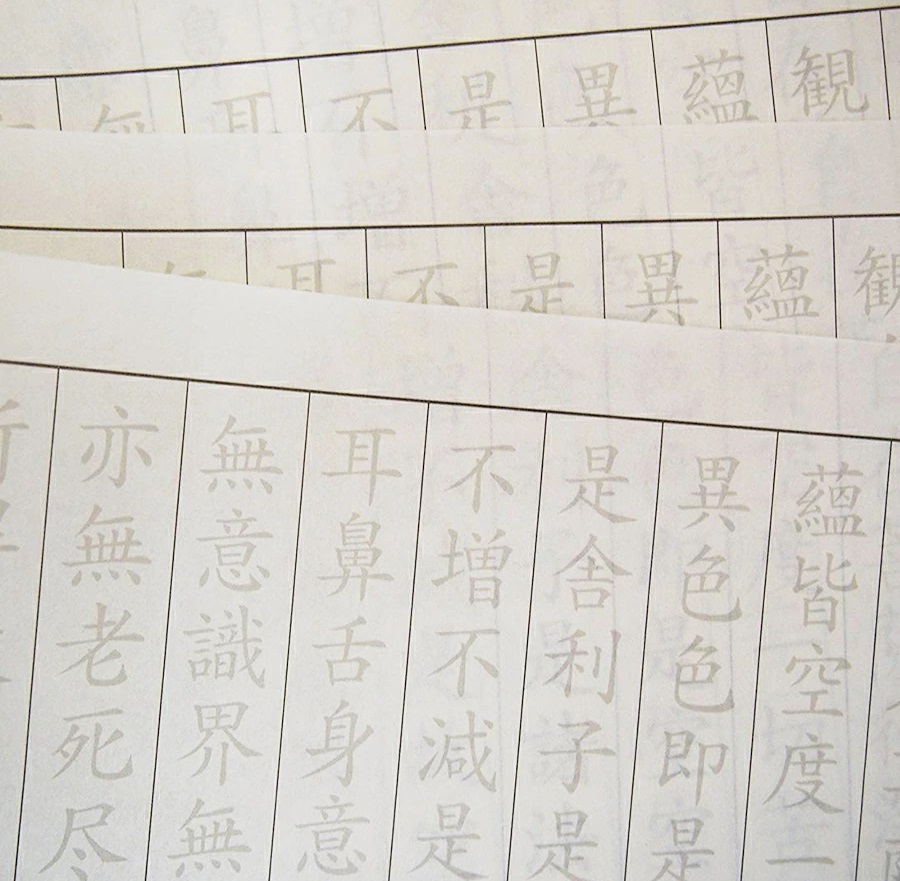 観
蘊
異
是
不
耳
無
観
蘊
異
是
不
耳
蘊皆空度一
異色色即是
是舎利子是
不増不減是
耳鼻舌身意
無意識界無
亦無老死尽